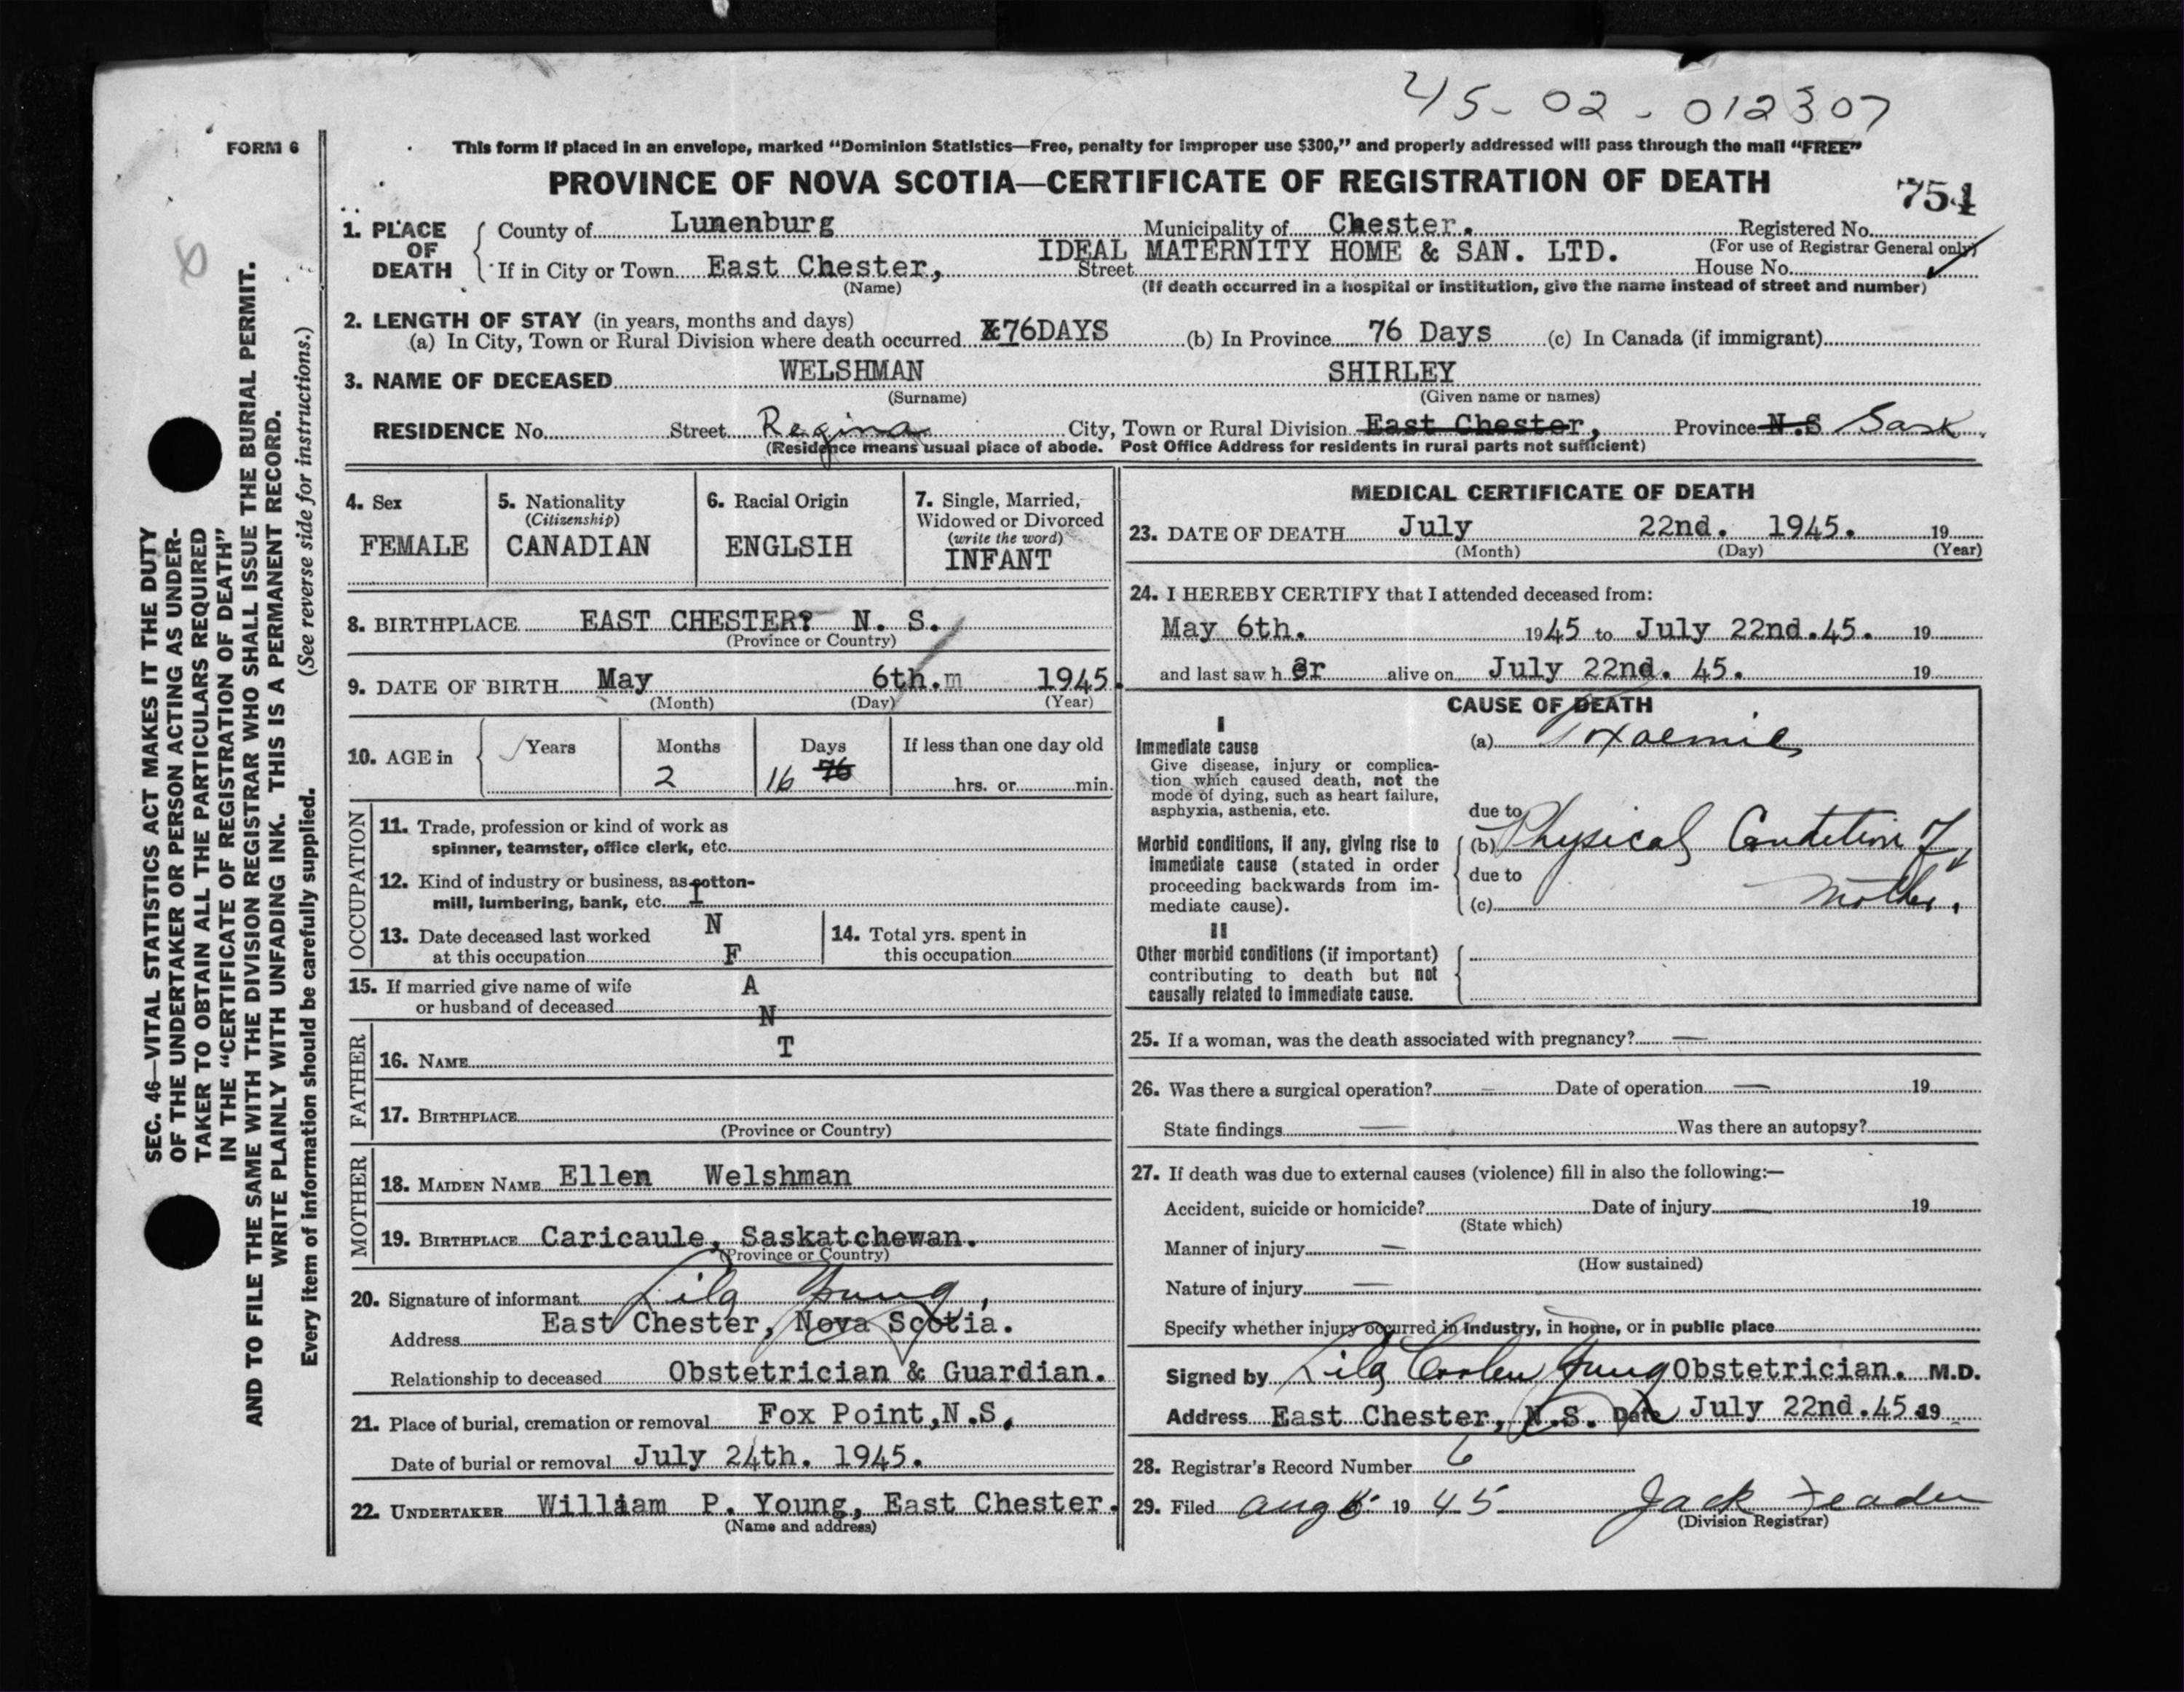 45-02-012307
FORM 6
This form if placed in an envelope, marked "Dominion Statistics—Free, penalty for improper use $300," and properly addressed will pass through the mail "FREE"
PROVINCE OF NOVA SCOTIA—CERTIFICATE OF REGISTRATION OF DEATH
754
1. PLACE OF DEATH County of Lunenburg Municipality of Chester. Registered No.
(For use of Registrar General only)
IDEAL MATERNITY HOME & SAN. LTD.
If in City or Town East Chester, Street House No.
(Name) (If death occurred in a hospital or institution, give the name instead of street and number)
2. LENGTH OF STAY (in years, months and days)
(a) In City, Town or Rural Division where death occurred 76DAYS (b) In Province 76 Days (c) In Canada (if immigrant)
3. NAME OF DECEASED WELSHMAN SHIRLEY
(Surname) (Given name or names)
RESIDENCE No. Street Regina City, Town or Rural Division East Chester, Province N.S Sask.
(Residence means usual place of abode. Post Office Address for residents in rural parts not sufficient)
4. Sex
FEMALE
5. Nationality
(Citizenship)
CANADIAN
6. Racial Origin
ENGLSIH
7. Single, Married, Widowed or Divorced
(write the word)
INFANT
8. BIRTHPLACE EAST CHESTER? N. S.
(Province or Country)
9. DATE OF BIRTH May 6th.m 1945.
(Month) (Day) (Year)
10. AGE in Years Months Days If less than one day old
2 16 76 hrs. or min.
OCCUPATION
11. Trade, profession or kind of work as
spinner, teamster, office clerk, etc.
12. Kind of industry or business, as cotton-
mill, lumbering, bank, etc. I
N
13. Date deceased last worked
at this occupation F
14. Total yrs. spent in
this occupation
15. If married give name of wife A
or husband of deceased N
T
FATHER
16. NAME
17. BIRTHPLACE
(Province or Country)
MOTHER
18. MAIDEN NAME Ellen Welshman
19. BIRTHPLACE Caricaule, Saskatchewan.
(Province or Country)
20. Signature of informant Lila Young,
Address East Chester, Nova Scotia.
Relationship to deceased Obstetrician & Guardian.
21. Place of burial, cremation or removal Fox Point, N.S.
Date of burial or removal July 24th. 1945.
22. UNDERTAKER William P. Young, East Chester.
(Name and address)
MEDICAL CERTIFICATE OF DEATH
23. DATE OF DEATH July 22nd. 1945. 19
(Month) (Day) (Year)
24. I HEREBY CERTIFY that I attended deceased from:
May 6th. 1945 to July 22nd.45. 19
and last saw her alive on July 22nd. 45. 19
CAUSE OF DEATH
I
Immediate cause (a) Toxaemia
Give disease, injury or complica-
tion which caused death, not the
mode of dying, such as heart failure,
asphyxia, asthenia, etc.
due to
Morbid conditions, if any, giving rise to
immediate cause (stated in order
proceeding backwards from im-
mediate cause).
(b) Physical Condition of
due to
(c) Mother.
II
Other morbid conditions (if important)
contributing to death but not
causally related to immediate cause.
25. If a woman, was the death associated with pregnancy? —
26. Was there a surgical operation? — Date of operation — 19
State findings — Was there an autopsy?
27. If death was due to external causes (violence) fill in also the following:—
Accident, suicide or homicide? Date of injury — 19
(State which)
Manner of injury —
(How sustained)
Nature of injury —
Specify whether injury occurred in industry, in home, or in public place
Signed by Lila Coolen Young Obstetrician. M.D.
Address East Chester, N.S. Date July 22nd.45.19
28. Registrar's Record Number 6
29. Filed Aug 1945 Jack
(Division Registrar)
SEC. 46—VITAL STATISTICS ACT MAKES IT THE DUTY
OF THE UNDERTAKER OR PERSON ACTING AS UNDER-
TAKER TO OBTAIN ALL THE PARTICULARS REQUIRED
IN THE "CERTIFICATE OF REGISTRATION OF DEATH"
AND TO FILE THE SAME WITH THE DIVISION REGISTRAR WHO SHALL ISSUE THE BURIAL PERMIT.
WRITE PLAINLY WITH UNFADING INK. THIS IS A PERMANENT RECORD.
Every item of information should be carefully supplied. (See reverse side for instructions.)
8